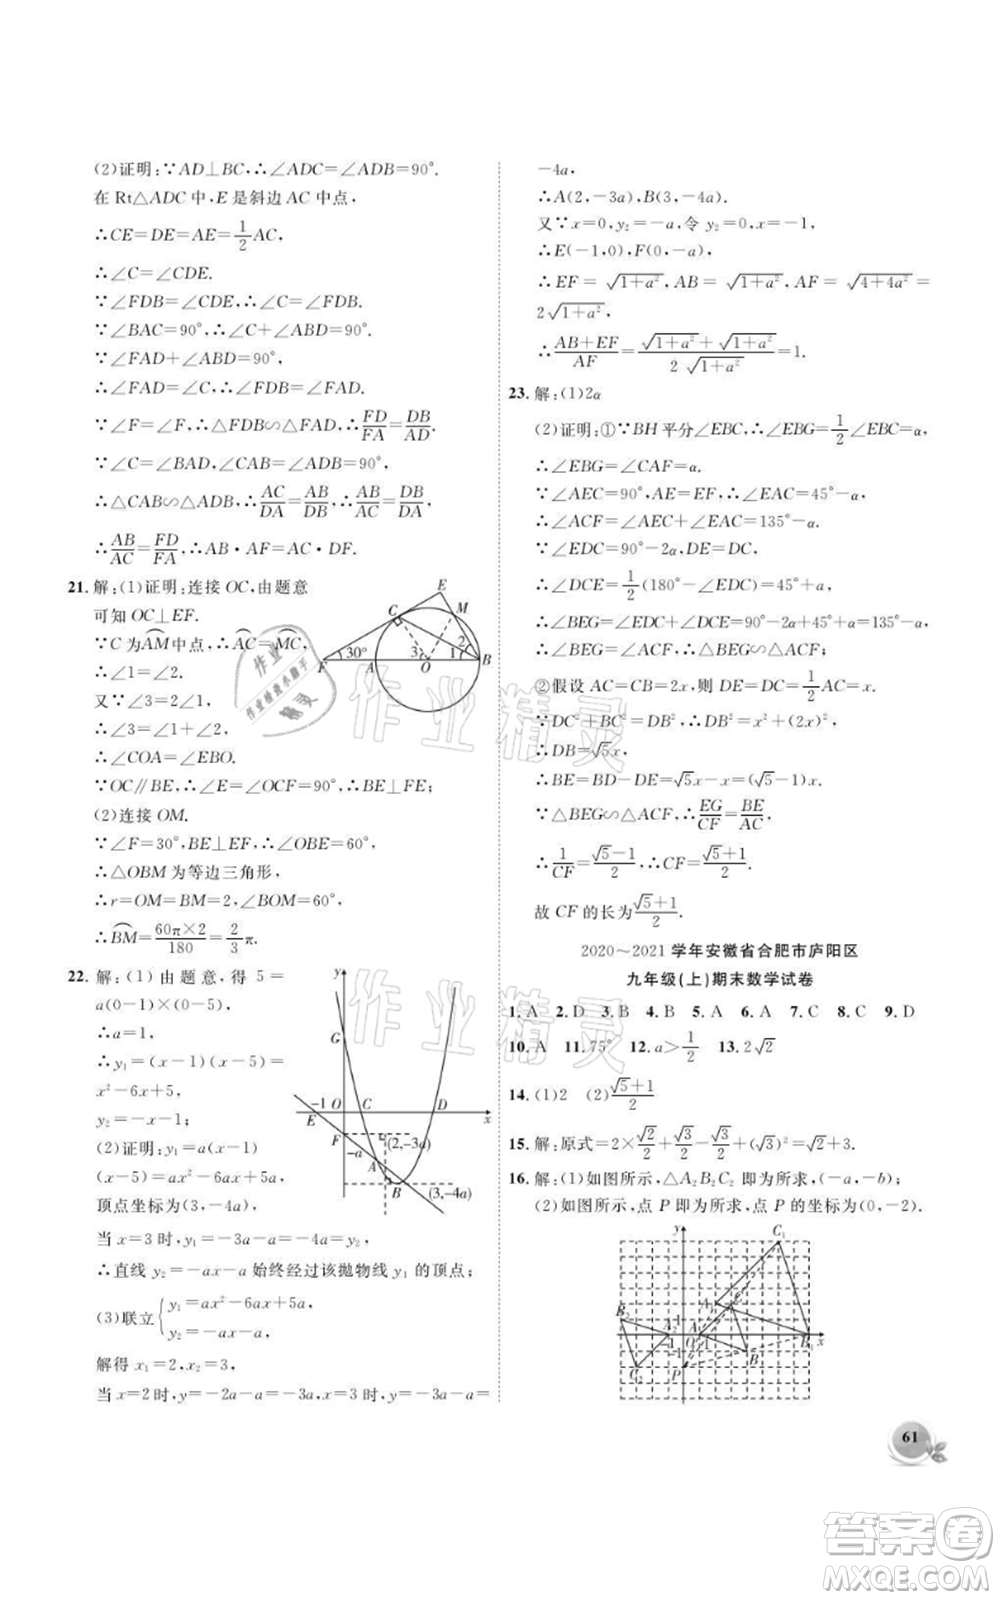 (2)证明:∵AD⊥BC,∴∠ADC=∠ADB=90°.
在 Rt△ADC 中,E 是斜边 AC 中点,
∴CE=DE=AE=1/2AC,
∴∠C=∠CDE.
∵∠FDB=∠CDE,∴∠C=∠FDB.
∵∠BAC=90°,∴∠C+∠ABD=90°.
∵∠FAD+∠ABD=90°,
∴∠FAD=∠C,∴∠FDB=∠FAD.
∵∠F=∠F,∴△FDB∽△FAD,∴FD/FA=DB/AD.
∵∠C=∠BAD,∠CAB=∠ADB=90°,
∴△CAB∽△ADB,∴AC/DA=AB/DB,∴AB/AC=DB/DA,
∴AB/AC=FD/FA,∴AB·AF=AC·DF.
21. 解:(1)证明:连接 OC,由题意
可知 OC⊥EF.
∵C 为AM⌒中点,∴AC⌒=MC⌒,
∴∠1=∠2.
又∵∠3=2∠1,
∴∠3=∠1+∠2,
∴∠COA=∠EBO.
∵OC∥BE,∴∠E=∠OCF=90°,∴BE⊥FE;
(2)连接 OM.
∵∠F=30°,∠BEF=90°,∴∠OBE=60°,
∴△OBM 为等边三角形,
∴r=OM=BM=2,∠BOM=60°,
∴BM⌒=60π×2/180=2/3π.
E
C
M
F
30°
A
3
O
1
2
B
22. 解:(1)由题意,得 5=
a(0-1)(0-5),
∴a=1,
∴y₁=(x-1)(x-5)=
x²-6x+5,
y₂=-x-1;
(2)证明:y₁=a(x-1)
(x-5)=ax²-6ax+5a,
顶点坐标为(3,-4a),
当 x=3 时,y₂=-3a-a=-4a,
∴直线 y₂=-ax-a 始终经过该抛物线 y₁ 的顶点;
(3)联立{y₁=ax²-6ax+5a,
y₂=-ax-a,
解得 x₁=2,x₂=3,
当 x=2 时,y=-2a-a=-3a,当 x=3 时,y=-3a-a=
y
G
-1 O C D x
E
F
-a
A
(2,-3a)
B
(3,-4a)
-4a,
∴A(2,-3a),B(3,-4a).
又∵x=0,y₂=-a,令 y₂=0,x=-1,
∴E(-1,0),F(0,-a)
∴EF=√(1+a²),AB=√(1+a²),AF=√(4+4a²)=
2√(1+a²),
∴(AB+EF)/AF=(√(1+a²)+√(1+a²))/(2√(1+a²))=1.
23. 解:(1)2α
(2)证明:①∵BH 平分∠EBC,∴∠EBG=1/2∠EBC=α,
∴∠EBG=∠CAF=α.
∵∠AEC=90°,AE=EF,∴∠CAE=45°-α,
∴∠ACF=∠AEC+∠CAE=135°-α.
∵∠DCE=90°-2α,DE=DC,
∴∠DEC=1/2(180°-∠DCE)=45°+α,
∴∠BEG=∠BEC+∠DCE=90°-2α+45°+α=135°-α,
∴∠BEG=∠ACF,∴△BEG∽△ACF;
②假设 AC=CB=2x,则 DE=DC=1/2AC=x.
∵DC²+BC²=DB²,∴DB²=x²+(2x)²,
∴DB=√5x,
∴BE=BD-DE=√5x-x=(√5-1)x.
∵△BEG∽△ACF,∴EG/CF=BE/AC,
∴1/CF=(√5-1)/2,∴CF=(√5+1)/2.
故 CF 的长为(√5+1)/2.
2020~2021 学年安徽省合肥市庐阳区
九年级(上)期末数学试卷
1. A 2. D 3. B 4. B 5. A 6. A 7. C 8. C 9. D
10. A 11. 75° 12. a>1/2 13. 2√2
14. (1)2 (2)(√5+1)/2
15. 解:原式=2×√2/2+√3/2-√3/2+(√3)²=√2+3.
16. 解:(1)如图所示,△A₂B₂C₂ 即为所求,(-a,-b);
(2)如图所示,点 P 即为所求,点 P 的坐标为(0,-2).
y
C₁
B₂
A₂
C₂
P
x
61
作业精灵
作业精灵
作业精灵
答案卷
MXQE.COM